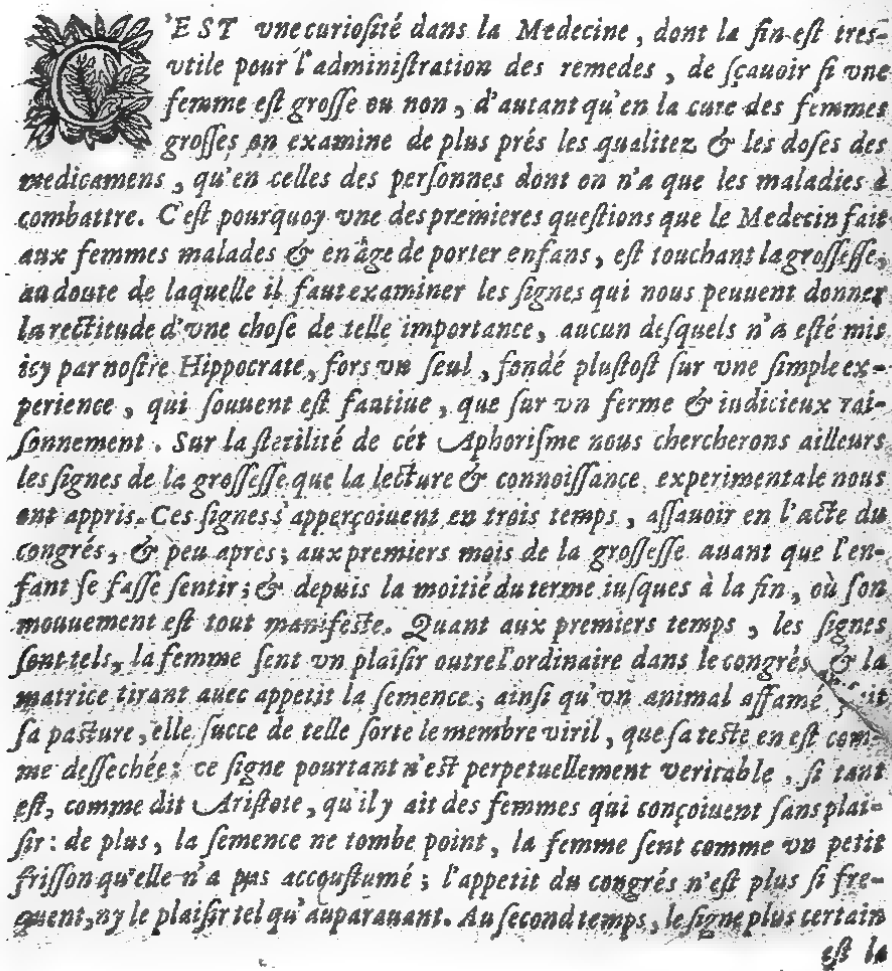 C'EST vne curiosité dans la Medecine, dont la fin est tres-
vtile pour l'administration des remedes, de sçauoir si vne
femme est grosse ou non, d'autant qu'en la cure des femmes
grosses on examine de plus prés les qualitez & les doses des
medicamens, qu'en celles des personnes dont on n'a que les maladies à
combattre. C'est pourquoy vne des premieres questions que le Medecin fait
aux femmes malades & en âge de porter enfans, est touchant la grossesse,
au doute de laquelle il faut examiner les signes qui nous peuuent donner
la rectitude d'vne chose de telle importance, aucun desquels n'a esté mis
icy par nostre Hippocrate, fors vn seul, fondé plustost sur vne simple ex-
perience, qui souuent est fautiue, que sur vn ferme & iudicieux rai-
sonnement. Sur la sterilité de cét Aphorisme nous chercherons ailleurs
les signes de la grossesse que la lecture & connoissance experimentale nous
ont appris. Ces signes s'apperçoiuent en trois temps, assauoir en l'acte du
congrés, & peu apres; aux premiers mois de la grossesse auant que l'en-
fant se fasse sentir; & depuis la moitié du terme iusques à la fin, où son
mouuement est tout manifeste. Quant aux premiers temps, les signes
sont tels, la femme sent vn plaisir outre l'ordinaire dans le congrés & la
matrice tirant auec appetit la semence; ainsi qu'vn animal affamé, suit
sa pasture, elle succe de telle sorte le membre viril, que sa teste en est com-
me dessechée: ce signe pourtant n'est perpetuellement veritable, si tant
est, comme dit Aristote, qu'il y ait des femmes qui conçoiuent sans plai-
sir: de plus, la semence ne tombe point, la femme sent comme vn petit
frisson qu'elle n'a pas accoustumé; l'appetit du congrés n'est plus si fre-
quent, ny le plaisir tel qu'auparauant. Au second temps, le signe plus certain
est la